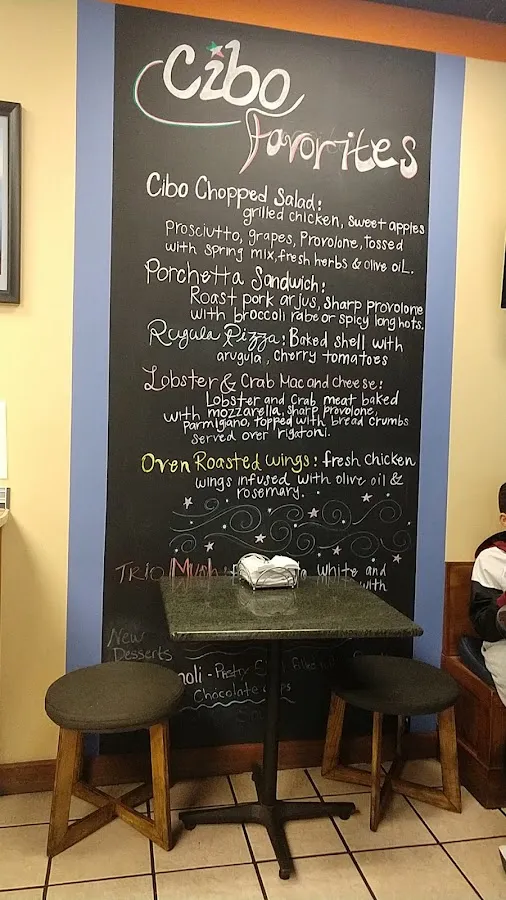 Cibo
Favorites
Cibo Chopped Salad:
grilled chicken, sweet apples
Prosciutto, grapes, Provolone, Tossed
with spring mix, fresh herbs & olive oil.
Porchetta Sandwich:
Roast pork arjus, sharp provolone
with broccoli rabe or spicy long hots.
Rugula Pizza: Baked shell with
arugula, cherry tomatoes
Lobster & Crab Mac and cheese:
Lobster and Crab meat baked
with mozzarella, sharp provolone,
Parmigiano, topped with bread crumbs
served over rigatoni.
Oven Roasted wings: fresh chicken
wings infused with olive oil &
rosemary.
TRIO white and
with
New
Desserts
Chocolate